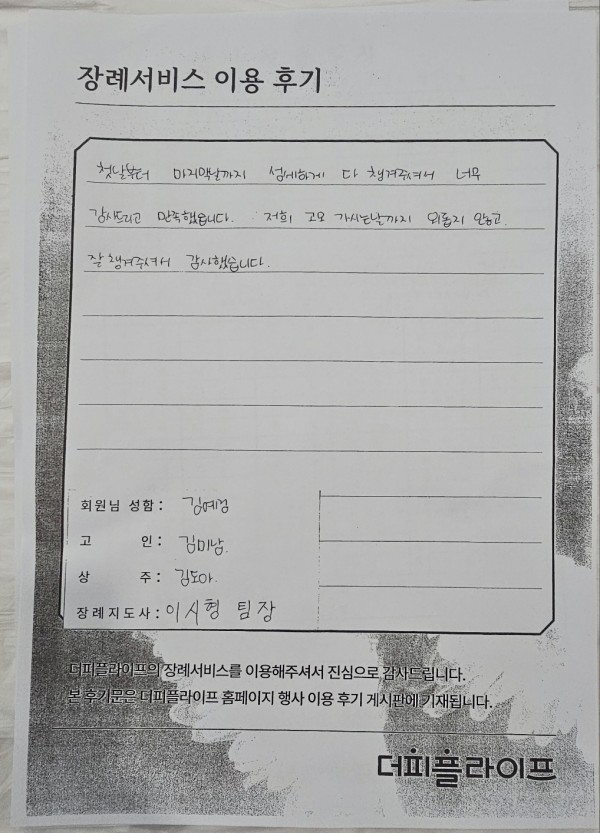 장례서비스 이용 후기
첫날부터 마지막날까지 섬세하게 다 챙겨주셔서 너무
감사드리고 만족했습니다. 저희 고모 가시는날까지 외롭지 않게
잘 챙겨주셔서 감사했습니다.
회원님 성함 : 김예검
고 인 : 김미남
상 주 : 김도아
장례지도사 : 이시형 팀장
더피플라이프의 장례서비스를 이용해주셔서 진심으로 감사드립니다.
본 후기문은 더피플라이프 홈페이지 행사 이용 후기 게시판에 기재됩니다.
더피플라이프